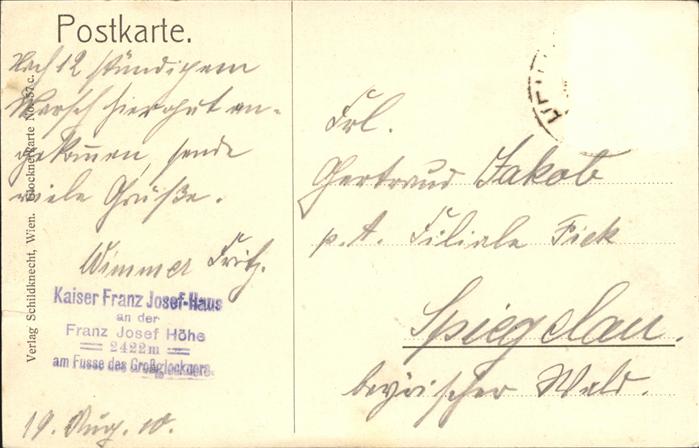 Postkarte.
Nach 12 stündigem
Marsch hier gut an-
gekommen, sende
viele Grüße.
Wimmer Fritz.
Kaiser Franz Josef-Haus
an der
Franz Josef Höhe
2422m
am Fusse des Großglockners.
19. Aug. 10.
Verlag Schildknecht, Wien. Glocknerkarte No. 57 c.
Frl.
Gertraud Jakob
p. A. Filiale Fick
Spiegelau.
bayrischer Wald.